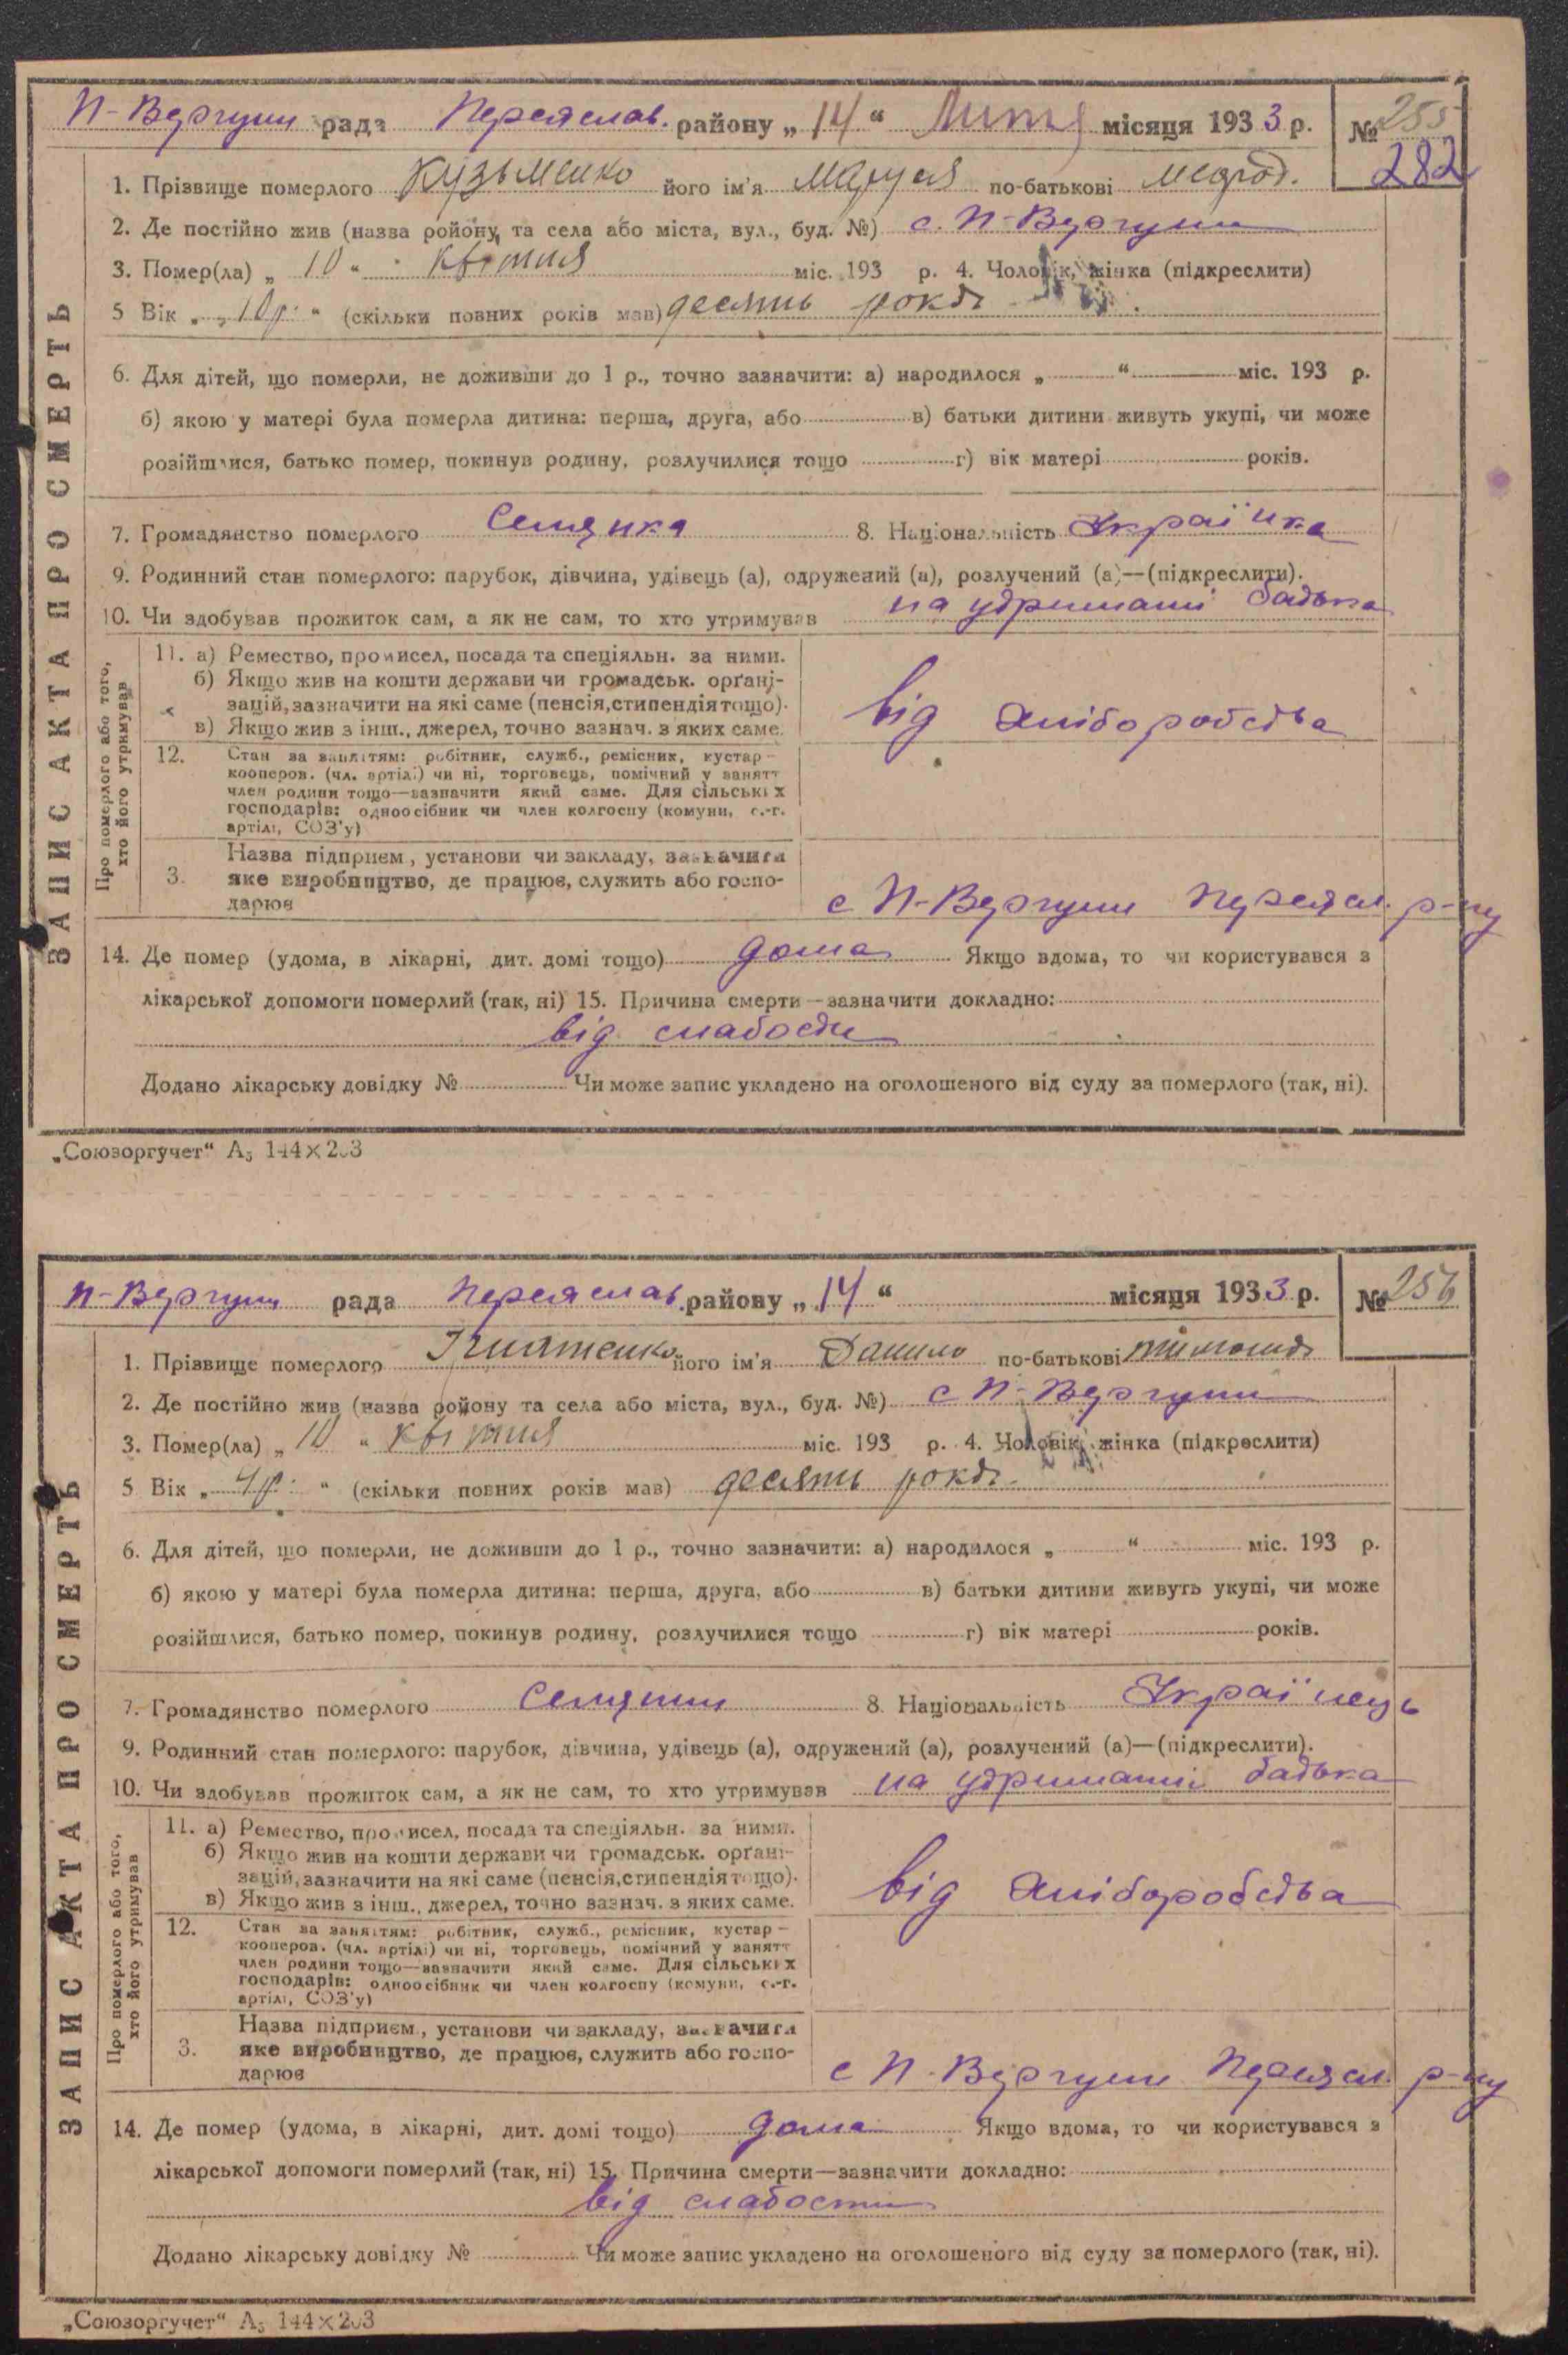 П-Вергуни рада Переяслав. району „ 14 “ Липня місяця 1933 р. № 255
282
1. Прізвище померлого Кузьменко його ім'я Маруся по-батькові
2. Де постійно жив (назва району та села або міста, вул., буд. №) с. П-Вергуни
3. Помер(ла) „ 10 “ квітня міс. 193 р. 4. Чоловік, жінка (підкреслити)
5 Вік „ 10 р. “ (скільки повних років мав) десять років
6. Для дітей, що померли, не доживши до 1 р., точно зазначити: а) народилося „ “ міс. 193 р.
б) якою у матері була померла дитина: перша, друга, або в) батьки дитини живуть укупі, чи може
розійшлися, батько помер, покинув родину, розлучилися тощо г) вік матері років.
7. Громадянство померлого Селянка 8. Національність Українка
9. Родинний стан померлого: парубок, дівчина, удівець (а), одружений (а), розлучений (а)—(підкреслити).
10. Чи здобував прожиток сам, а як не сам, то хто утримував на удриманні батька
ЗАПИС АКТА ПРО СМЕРТЬ
Про померлого або того,
хто його утримував
11. а) Ремество, промисел, посада та спеціяльн. за ними.
б) Якщо жив на кошти держави чи громадськ. орґані-
зацій, зазначити на які саме (пенсія, стипендія тощо).
в) Якщо жив з інш., джерел, точно зазнач. з яких саме.
від хліборобства
12. Стан за заняттям: робітник, служб., ремісник, кустар—
кооперов. (чл. артілі) чи ні, торговець, помічний у занятт
член родини тощо—зазначити який саме. Для сільських
господарів: одноосібник чи член колгоспу (комуни, с.-г.
артілі, СОЗ'у)
3. Назва підприєм., установи чи закладу, зазначити
яке виробництво, де працює, служить або госпо-
дарює
с П-Вергуни Переясл. р-ну
14. Де помер (удома, в лікарні, дит. домі тощо) дома Якщо вдома, то чи користувався з
лікарської допомоги померлий (так, ні) 15. Причина смерти—зазначити докладно:
від слабости
Додано лікарську довідку № Чи може запис укладено на оголошеного від суду за померлого (так, ні).
„Союзоргучет“ А5 144×203
П-Вергуни рада Переяслав. району „ 14 “ місяця 1933 р. № 256
1. Прізвище померлого Ігнатенко його ім'я Данило по-батькові
2. Де постійно жив (назва району та села або міста, вул., буд. №) с П-Вергуни
3. Помер(ла) „ 10 “ квітня міс. 193 р. 4. Чоловік, жінка (підкреслити)
5 Вік „ “ (скільки повних років мав) десять років
6. Для дітей, що померли, не доживши до 1 р., точно зазначити: а) народилося „ “ міс. 193 р.
б) якою у матері була померла дитина: перша, друга, або в) батьки дитини живуть укупі, чи може
розійшлися, батько помер, покинув родину, розлучилися тощо г) вік матері років.
7. Громадянство померлого Селянин 8. Національність Українець
9. Родинний стан померлого: парубок, дівчина, удівець (а), одружений (а), розлучений (а)—(підкреслити).
10. Чи здобував прожиток сам, а як не сам, то хто утримував на удриманні батька
ЗАПИС АКТА ПРО СМЕРТЬ
Про померлого або того,
хто його утримував
11. а) Ремество, промисел, посада та спеціяльн. за ними.
б) Якщо жив на кошти держави чи громадськ. орґані-
зацій, зазначити на які саме (пенсія, стипендія тощо).
в) Якщо жив з інш., джерел, точно зазнач. з яких саме.
від хліборобства
12. Стан за заняттям: робітник, служб., ремісник, кустар—
кооперов. (чл. артілі) чи ні, торговець, помічний у занятт
член родини тощо—зазначити який саме. Для сільських
господарів: одноосібник чи член колгоспу (комуни, с.-г.
артілі, СОЗ'у)
3. Назва підприєм., установи чи закладу, зазначити
яке виробництво, де працює, служить або госпо-
дарює
с П-Вергуни Переясл. р-ну
14. Де помер (удома, в лікарні, дит. домі тощо) дома Якщо вдома, то чи користувався з
лікарської допомоги померлий (так, ні) 15. Причина смерти—зазначити докладно:
від слабости
Додано лікарську довідку № Чи може запис укладено на оголошеного від суду за померлого (так, ні).
„Союзоргучет“ А5 144×203